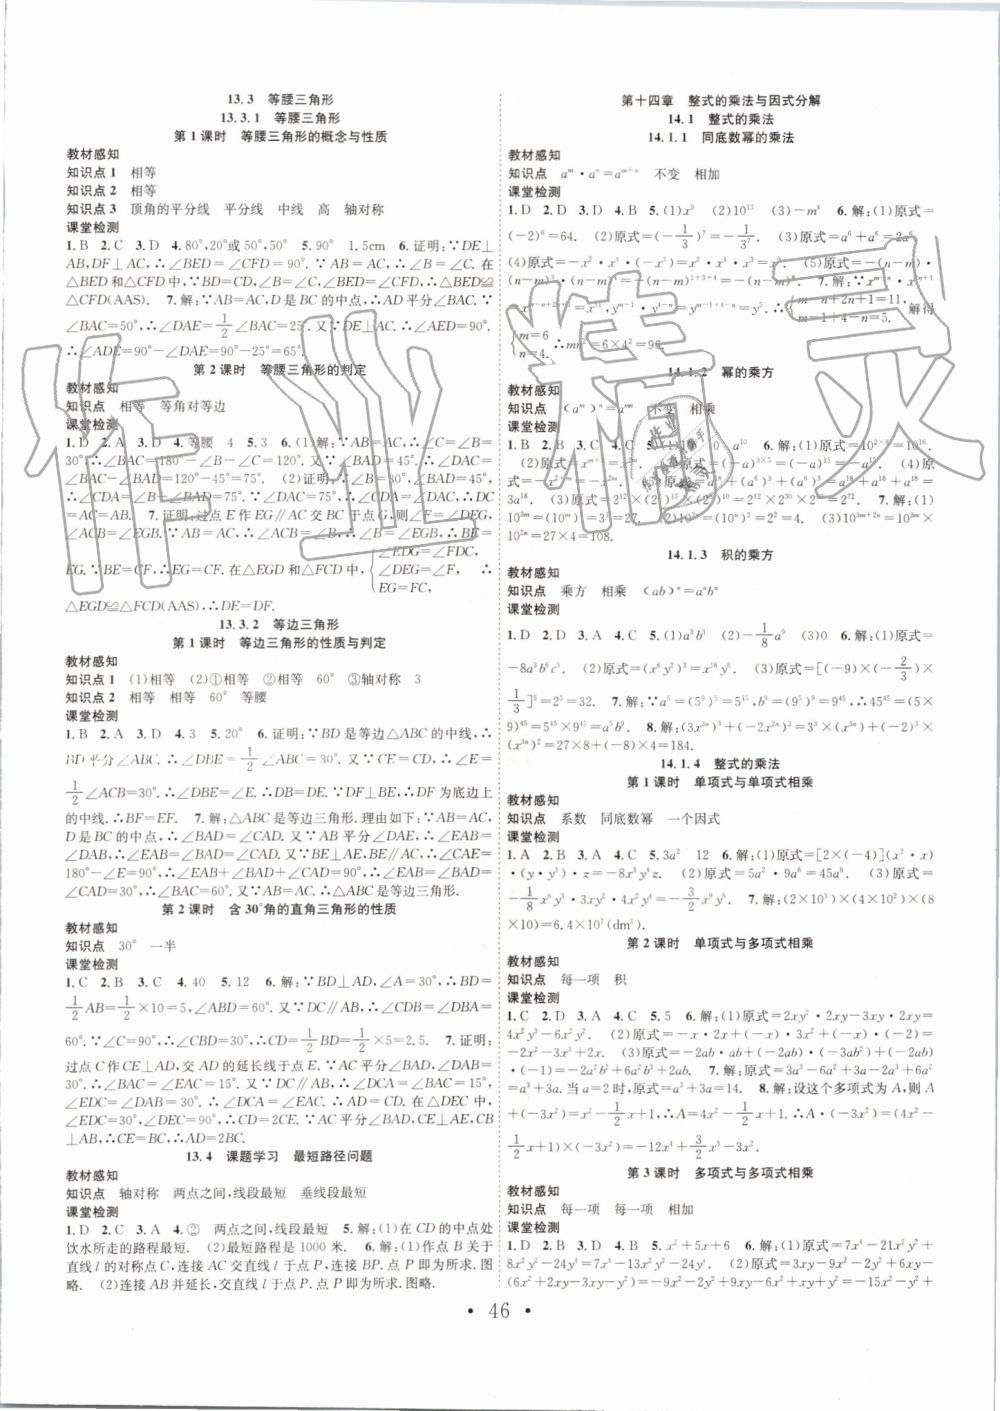 13.3 等腰三角形
13.3.1 等腰三角形
第1课时 等腰三角形的概念与性质
教材感知
知识点1 相等
知识点2 相等
知识点3 顶角的平分线 平分线 中线 高 轴对称
课堂检测
1.B 2.C 3.D 4.80°,20°或50°,50° 5.90° 1.5cm 6.证明:∵DE⊥
AB,DF⊥AC,∴∠BED=∠CFD=90°.∵AB=AC,∴∠B=∠C.在
△BED和△CFD中,∵BD=CD,∠B=∠C,∠BED=∠CFD,∴△BED≌
△CFD(AAS). 7.解:∵AB=AC,D是BC的中点,∴AD平分∠BAC.∵
∠BAC=50°,∴∠DAE=1/2∠BAC=25°.又∵DE⊥AC,∴∠AED=90°.
∴∠ADE=90°-∠DAE=90°-25°=65°.
第2课时 等腰三角形的判定
教材感知
知识点 相等 等角对等边
课堂检测
1.D 2.A 3.D 4.等腰 4 5.3 6.(1)解:∵AB=AC,∴∠C=∠B=
30°.∴∠BAC=180°-∠B-∠C=120°.∵∠BAD=45°,∴∠DAC=
∠BAC-∠BAD=120°-45°=75°. (2)证明:∵∠B=30°,∠BAD=45°,
∴∠CDA=∠B+∠BAD=75°.∵∠DAC=75°,∴∠CDA=∠DAC,∴DC
=AC=AB. 7.证明:过点E作EG∥AC交BC于点G,则∠F=∠DEG,
∠ACB=∠EGB.∵AB=AC,∴∠B=∠ACB,∴∠B=∠EGB,∴BE=
EG.∵BE=CF,∴EG=CF.在△EGD和△FCD中,{∠EDG=∠FDC, ∠DEG=∠F, EG=FC, ∴
△EGD≌△FCD(AAS),∴DE=DF.
13.3.2 等边三角形
第1课时 等边三角形的性质与判定
教材感知
知识点1 (1)相等 (2)①相等 ②相等 60° ③轴对称 3
知识点2 相等 相等 60° 等腰
课堂检测
1.B 2.A 3.D 4.3 5.20° 6.证明:∵BD是等边△ABC的中线,∴
BD平分∠ABC.∴∠DBE=1/2∠ABC=30°.又∵CE=CD,∴∠E=
1/2∠ACB=30°.∴∠DBE=∠E.∴DB=DE.∵DF⊥BE,∴DF为底边上
的中线.∴BF=EF. 7.解:△ABC是等边三角形.理由如下:∵AB=AC,
D是BC的中点,∴∠BAD=∠CAD.又∵AB平分∠DAE,∴∠EAB=
∠DAB,∴∠EAB=∠BAD=∠CAD.又∵BE⊥AE,BE∥AC,∴∠CAE=
180°-∠E=90°,∴∠EAB+∠BAD+∠CAD=90°,∴∠EAB=∠BAD=
∠CAD=30°.∴∠BAC=60°.又∵AB=AC,∴△ABC是等边三角形.
第2课时 含30°角的直角三角形的性质
教材感知
知识点 30° 一半
课堂检测
1.C 2.B 3.C 4.40 5.12 6.解:∵BD⊥AD,∠A=30°,∴BD=
1/2AB=1/2×10=5,∠ABD=60°.又∵DC∥AB,∴∠CDB=∠DBA=
60°.∵∠C=90°,∴∠CBD=30°.∴CD=1/2BD=1/2×5=2.5. 7.证明:
过点C作CE⊥AD,交AD的延长线于点E.∵AC平分∠BAD,∠BAD=
30°,∴∠DAC=∠BAC=15°.又∵DC∥AB,∴∠DCA=∠BAC=15°,
∠EDC=∠DAB=30°.∴∠DCA=∠EAC.∴AD=CD.在△DEC中,
∠EDC=30°,∠DEC=90°,∴CD=2CE.∵AC平分∠BAD,CE⊥AE,CB
⊥AB,∴CE=BC,∴AD=2BC.
13.4 课题学习 最短路径问题
教材感知
知识点 轴对称 两点之间,线段最短 垂线段最短
课堂检测
1.D 2.C 3.A 4.② 两点之间,线段最短 5.解:(1)在CD的中点处
饮水所走的路程最短. (2)最短路程是1000米. 6.解:(1)作点B关于
直线l的对称点C,连接AC交直线l于点P,连接BP.点P即为所求.图
略. (2)连接AB并延长,交直线l于点P.点P即为所求.图略.
第十四章 整式的乘法与因式分解
14.1 整式的乘法
14.1.1 同底数幂的乘法
教材感知
知识点 a^m·a^n=a^(m+n) 不变 相加
课堂检测
1.D 2.D 3.D 4.B 5.(1)x⁹ (2)10¹³ (3)-m⁴ 6.解:(1)原式=
(-2)⁶=64. (2)原式=(-1/3)⁷=-1/3⁷. (3)原式=a⁶+a⁶=2a⁶.
(4)原式=-x²·x⁴·(-x³)=x⁹. (5)原式=-(n-m)·
(n-m)³·(n-m)⁴=-(n-m)^(1+3+4)=-(n-m)⁸. 7.解:∵x^(m-n)·x^(2n+1)
=x^(m-n+2n+1)=x¹¹,y^(m-1)·y^(4-n)=y^(m-1+4-n)=y⁵,∴{m-n+2n+1=11, m-1+4-n=5. 解得
{m=6 n=4. ∴mn²=6×4²=96.
14.1.2 幂的乘方
教材感知
知识点 (a^m)^n=a^(mn) 不变 相乘
课堂检测
6.解:(1)原式=10^(2×8)=10¹⁶.
7.解:(1)
10^(3m)=(10^m)³=3³=27. (2)10^(2n)=(10^n)²=2²=4. (3)10^(3m+2n)=10^(3m)×
10^(2n)=27×4=108.
14.1.3 积的乘方
教材感知
知识点 乘方 相乘 (ab)^n=a^n b^n
课堂检测
1.D 2.D 3.A 4.C 5.(1)a³b³ (2)-1/8a⁹ (3)0 6.解:(1)原式=
-8a³b⁶c³. (2)原式=(x⁶y²)³=x¹⁸y⁶. (3)原式=[(-9)×(-2/3)×
1/3]⁵=2⁵=32. 7.解:∵a⁵=(5⁹)⁵=5⁴⁵,b⁵=(9⁵)⁹=9⁴⁵,∴45⁴⁵=(5×
9)⁴⁵=5⁴⁵×9⁴⁵=a⁵b⁹. 8.解:(3x^(3n))³+(-2x^(2n))³=3³×(x^(3n))³+(-2)³×
(x^(3n))²=27×8+(-8)×4=184.
14.1.4 整式的乘法
第1课时 单项式与单项式相乘
教材感知
知识点 系数 同底数幂 一个因式
课堂检测
1.A 2.B 3.A 4.C 5.3a² 12 6.解:(1)原式=[2×(-4)](x²·x)
·(y·y³)·z=-8x³y⁴z. (2)原式=5a²·9a⁶=45a⁸. (3)原式=-
1/8x⁶y³·3xy²·4x²y⁴=-3/2x⁹y⁹. 7.解:(2×10³)×(4×10³)×(8
×10)=6.4×10⁷(dm³).
第2课时 单项式与多项式相乘
教材感知
知识点 每一项 积
课堂检测
1.C 2.D 3.A 4.C 5.5 6.解:(1)原式=2xy²·2xy-3xy·2xy=
4x²y³-6x²y². (2)原式=-x·2x²+(-x)·3x+(-x)·(-2)=
-2x³-3x²+2x. (3)原式=-2ab·ab+(-2ab)·(-3ab²)+(-2ab)
·(-1)=-2a²b²+6a²b³+2ab. 7.解:原式=3a-2a²+2a+3a²-2a
=a²+3a.当a=2时,原式=a²+3a=14. 8.解:设这个多项式为A,则A
+(-3x²)=x²-1/2x+1,∴A=4x²-1/2x+1.∴A·(-3x²)=(4x²-
1/2x+1)×(-3x²)=-12x⁴+3/2x³-3x².
第3课时 多项式与多项式相乘
教材感知
知识点 每一项 每一项 相加
课堂检测
1.D 2.B 3.B 4.A 5.x²+5x+6 6.解:(1)原式=7x⁴-21x²y²+
8x²y²-24y⁴=7x⁴-13x²y²-24y⁴. (2)原式=3xy-9x²-2y²+6xy-
(6x²+2xy-3xy-y²)=3xy-9x²-2y²+6xy-6x²+xy+y²=-15x²-y²+
• 46 •
作业精灵